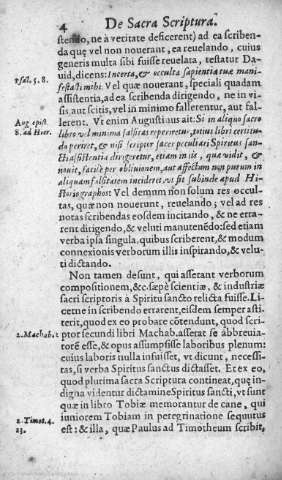 4 De Sacra Scriptura.
stendo, ne à veritate deficerent) ad ea scriben-
da quę vel non nouerant, ea reuelando, cuius
generis multa sibi fuisse reuelata, testatur Da-
Psal. 5. 8. uid, dicens: Incerta, & occulta sapientiæ tuæ mani-
festasti mihi. Vel quæ nouerant, speciali quadam
assistentia, ad ea scribenda dirigendo, ne in vi-
sis, aut scitis, vel in minimo fallerentur, aut fal-
Aug. epist. lerent. Vt enim Augustinus ait: Si in aliquo sacro
8. ad Hier. libro vel minima falsitas reperiretur, totius libri certitu-
do periret, & nisi scriptor sacer peculiari Spiritus san-
cti assistentia dirigeretur, etiam in iis, quæ vidit, &
nouit, facile per obliuionem, aut affectum non purum in
aliquam falsitatem incideret, vt fit subinde apud Hi-
storiographos. Vel demum non solum res occul-
tas, quæ non nouerunt, reuelando; vel ad res
notas scribendas eosdem incitando, & ne erra-
rent dirigendo, & veluti manutenẽdo: sed etiam
verba ipsa singula, quibus scriberent, & modum
connexionis verborum illis inspirando, & velu-
ti dictando.
Non tamen desunt, qui asserant verborum
compositionem, &c. sępè scientiæ, & industriæ
sacri scriptoris à Spiritu sancto relicta fuisse. Li-
cet ne in scribendo errarent, eisdem semper asti-
terit, quod ex eo probare cõtendunt, quod scri-
2. Machab. 2 ptor secundi libri Machab. asserat se abbreuia-
torẽ esse, & opus assumpsisse laboribus plenum:
cuius laboris nulla infuisset, vt dicunt, necessi-
tas, si verba Spiritus sanctus dictasset. Et ex eo,
quod plurima sacra Scriptura contineat, quę in-
digna videntur dictamine Spiritus sancti, vt sunt
quæ in libro Tobiæ memorantur de cane, qui
iuniorem Tobiam in peregrinatione sequutus
2. Timot. 4. est: & illa, quæ Paulus ad Timotheum scribit,
13.